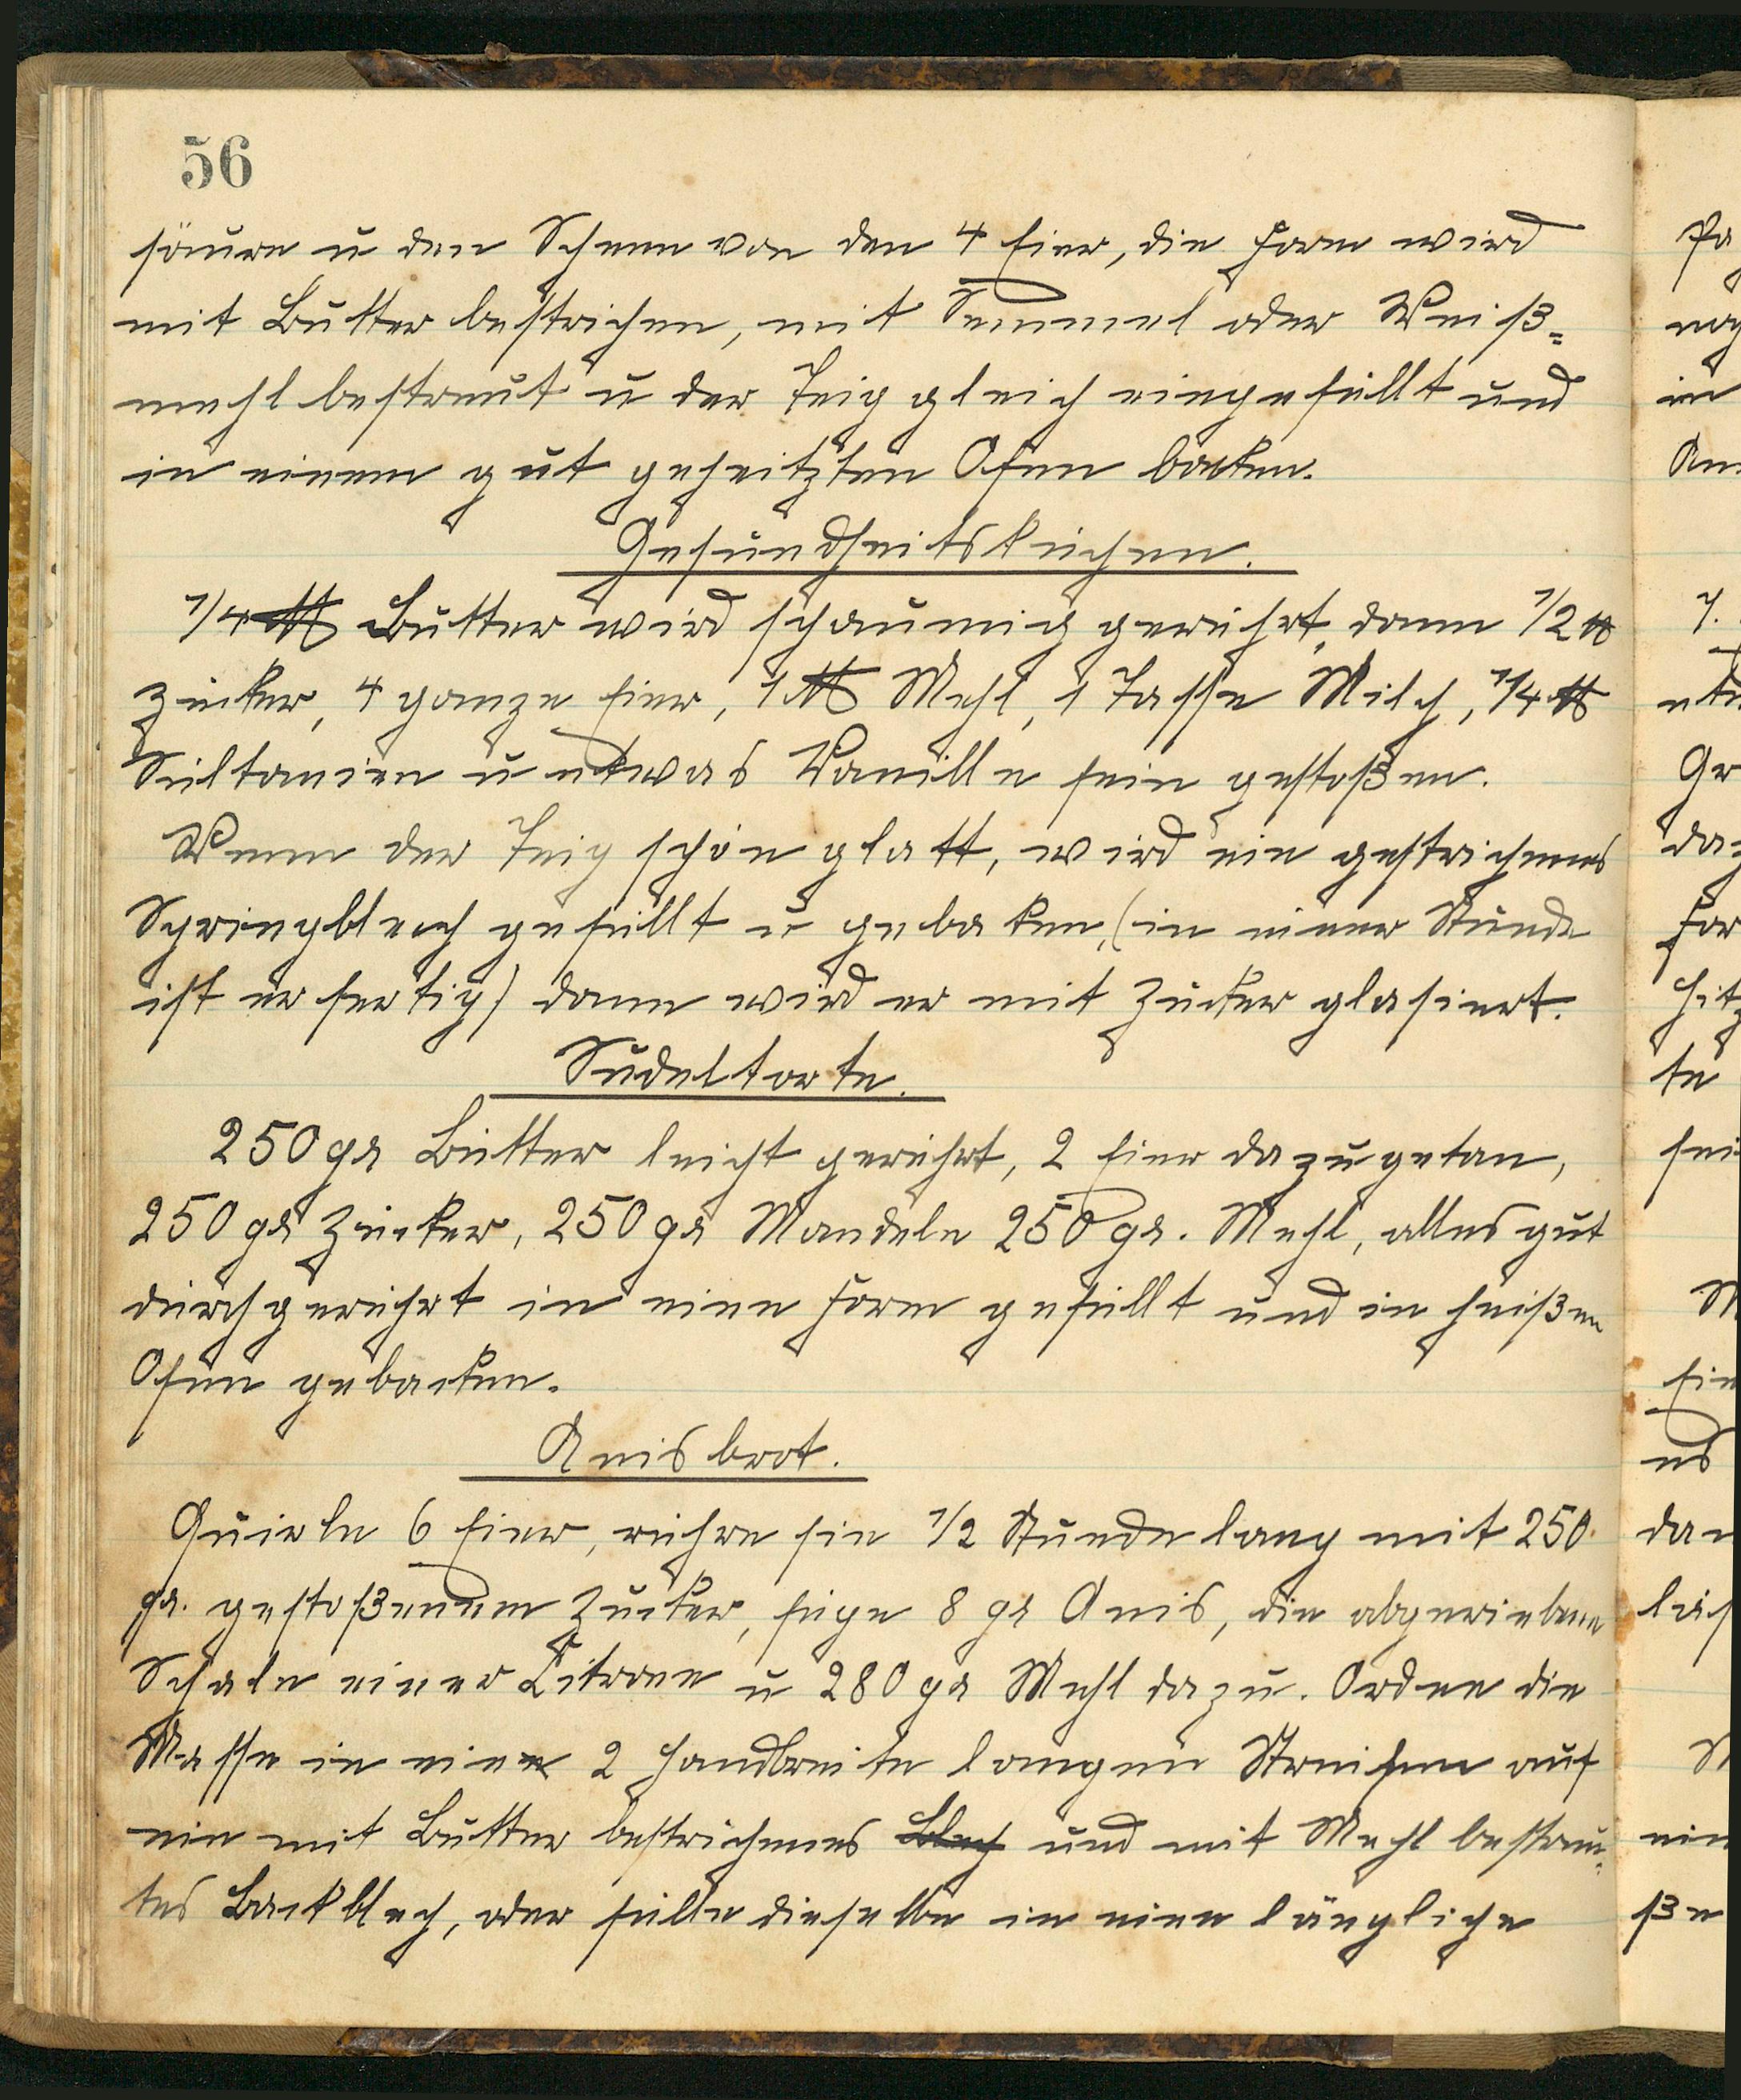 56
säure u den Schnee von den 4 Eier, die Form wird
mit Butter bestrichen, mit Semmel oder Weiß=
mehl bestreut u der Teig gleich eingefüllt und
in einem gut geheitzten Ofen backen.
Gesundheitskuchen.
1/4 ℔ Butter wird schaumig gerührt, dann 1/2 ℔
Zucker, 4 ganze Eier, 1 ℔ Mehl, 1 Tasse Milch, 1/4 ℔
Sultanien u etwas Vanille fein gestoßen.
Wenn der Teig schön glatt, wird ein gestrichenes
Springblech gefüllt u gebaken, (in einer Stunde
ist er fertig) dann wird er mit Zucker glasiert.
Sudeltorte.
250 gr Butter leicht gerührt, 2 Eier dazugetan,
250 gr Zucker, 250 gr Mandeln 250 gr. Mehl, alles gut
durchgerührt in eine Form gefüllt und in heißen
Ofen gebacken.
Anisbrot.
Quirle 6 Eier, rühre sie 1/2 Stunde lang mit 250
gr. gestoßenem Zucker, füge 8 gr Anis, die abgeriebene
Schale einer Zitrone u 280 gr Mehl dazu. Ordne die
Masse in eine 2 Handbreite langen Streifen auf
ein mit Butter bestrichenes Blech und mit Mehl bestreu=
tes Backblech, oder fülle dieselbe in eine längliche